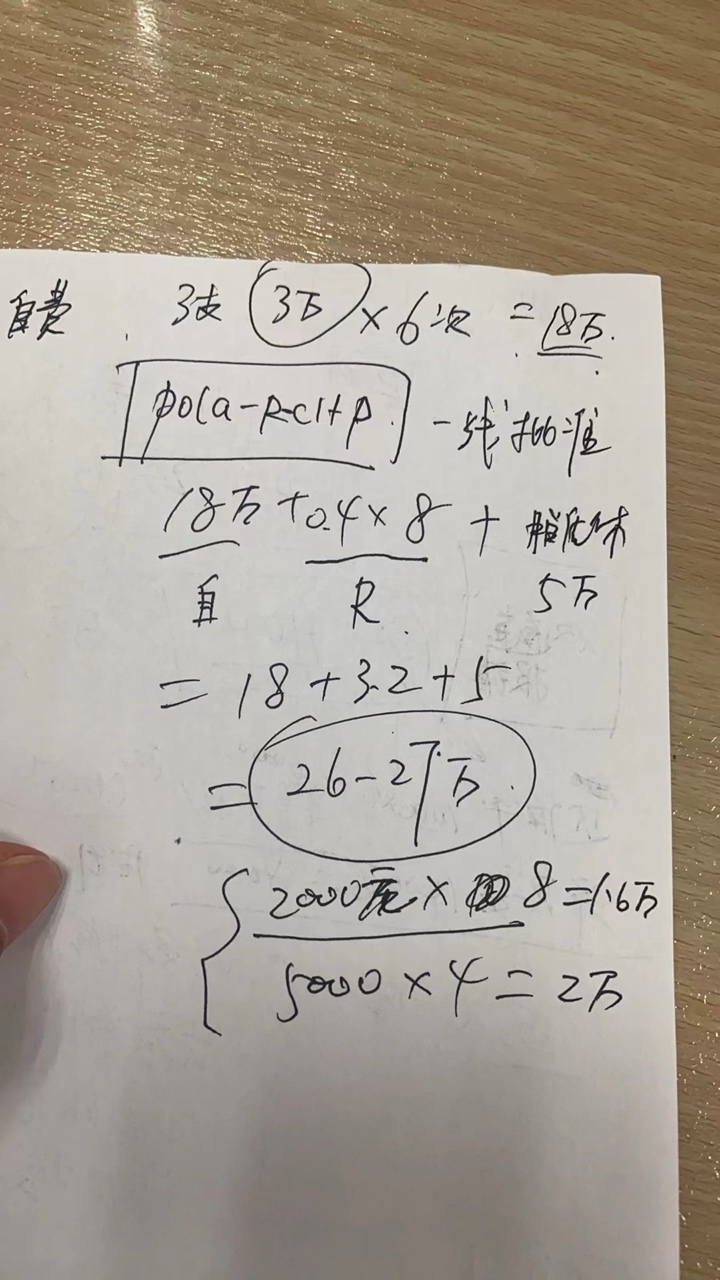 自费 3支 3万 × 6次 = 18万.
pola-R-CHP. 一线批准
18万 + 0.4 × 8 + 脂质体
自 R. 5万
= 18 + 3.2 + 5
= 26-27万.
2000 × 8 = 1.6万
5000 × 4 = 2万